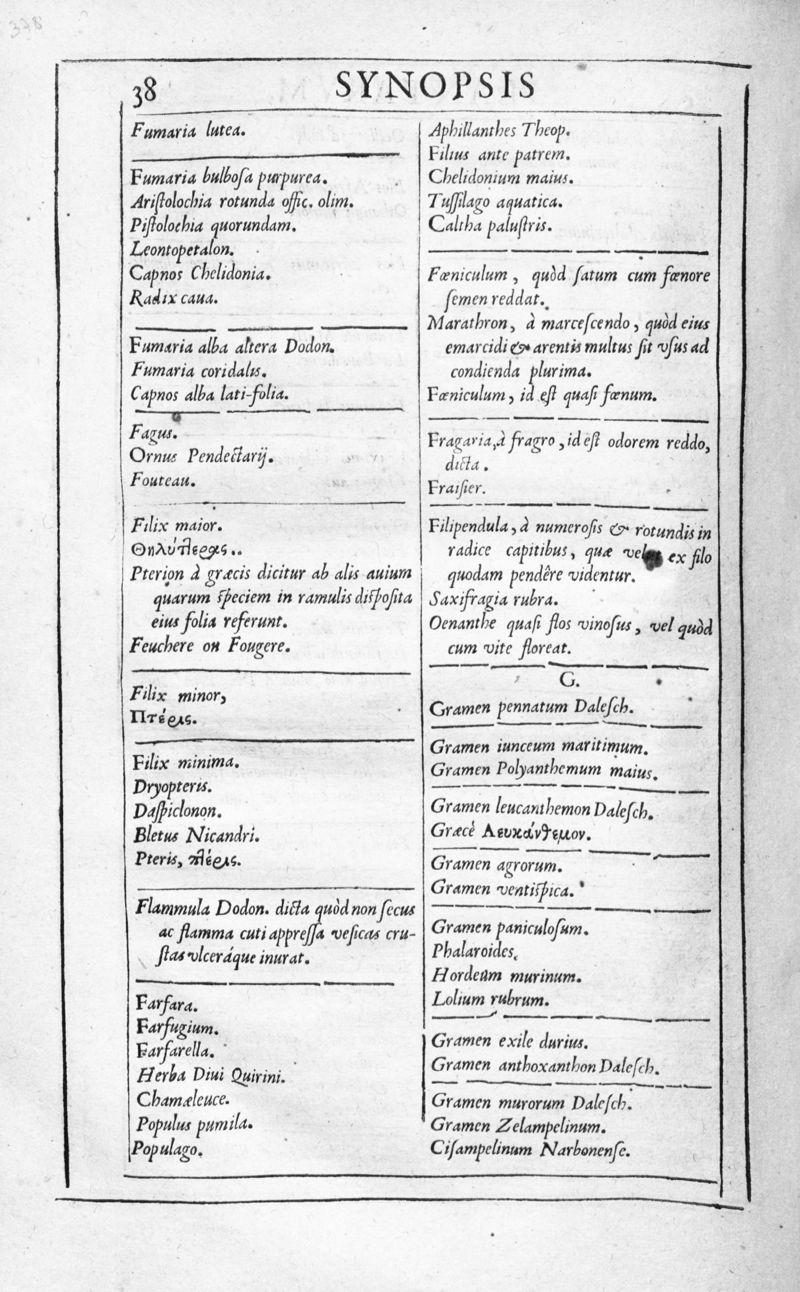 378
38
SYNOPSIS
Fumaria lutea.
Fumaria bulboſa purpurea.
Ariſtolochia rotunda offic. olim.
Piſtolochia quorundam.
Leontopetalon.
Capnos Chelidonia.
Radix caua.
Fumaria alba altera Dodon.
Fumaria coridalis.
Capnos alba lati-folia.
Fagus.
Ornus Pendectarij.
Fouteau.
Filix maior.
Θηλύπτερις..
Pterion à græcis dicitur ab alis auium
quarum ſpeciem in ramulis diſpoſita
eius folia referunt.
Feuchere ou Fougere.
Filix minor,
Πτέρις.
Filix minima.
Dryopteris.
Daſpiclonon.
Bletus Nicandri.
Pteris, πτέρις.
Flammula Dodon. dicta quòd non ſecus
ac flamma cuti appreſſa veſicas cru-
ſtas vlceráque inurat.
Farfara.
Farfugium.
Farfarella.
Herba Diui Quirini.
Chamæleuce.
Populus pumila.
Populago.
Aphillanthes Theop.
Filius ante patrem.
Chelidonium maius.
Tuſſilago aquatica.
Caltha paluſtris.
Fœniculum, quòd ſatum cum fœnore
ſemen reddat.
Marathron, à marceſcendo, quòd eius
emarcidi & arentis multus ſit vſus ad
condienda plurima.
Fœniculum, id eſt quaſi fœnum.
Fragaria, à fragro, id eſt odorem reddo,
dicta.
Fraiſier.
Filipendula, à numeroſis & rotundis in
radice capitibus, quæ vel ex filo
quodam pendêre videntur.
Saxifragia rubra.
Oenanthe quaſi flos vinoſus, vel quòd
cum vite floreat.
G.
Gramen pennatum Daleſch.
Gramen iunceum maritimum.
Gramen Polyanthemum maius.
Gramen leucanthemon Daleſch.
Græcè Λευκάνθεμον.
Gramen agrorum.
Gramen ventiſpica.
Gramen paniculoſum.
Phalaroides.
Hordeum murinum.
Lolium rubrum.
Gramen exile durius.
Gramen anthoxanthon Daleſch.
Gramen murorum Daleſch.
Gramen Zelampelinum.
Ciſampelinum Narbonenſe.